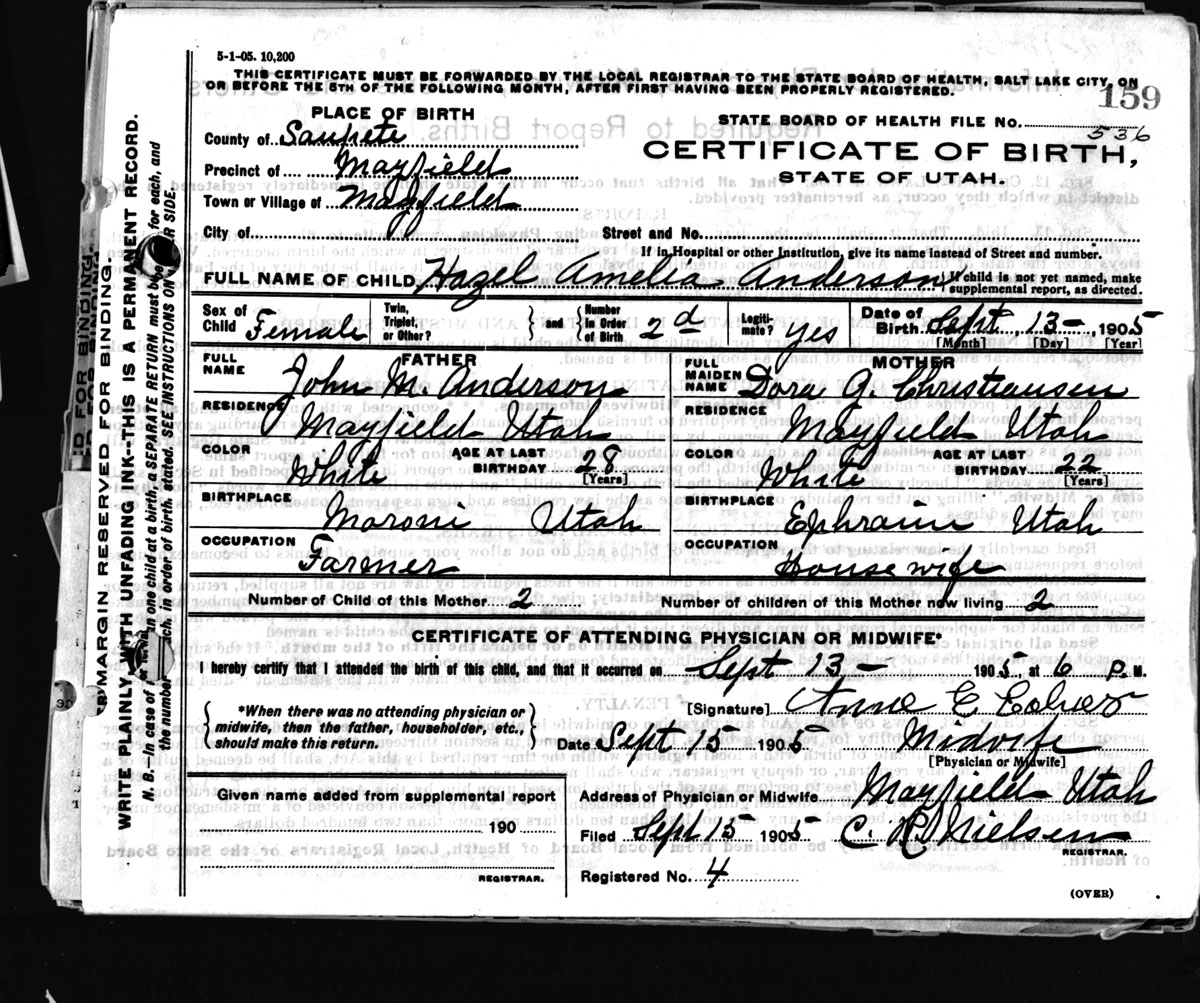 5-1-05. 10,200
THIS CERTIFICATE MUST BE FORWARDED BY THE LOCAL REGISTRAR TO THE STATE BOARD OF HEALTH, SALT LAKE CITY, ON
OR BEFORE THE 5TH OF THE FOLLOWING MONTH, AFTER FIRST HAVING BEEN PROPERLY REGISTERED.
159
PLACE OF BIRTH
STATE BOARD OF HEALTH FILE NO. 536
County of Sanpete
CERTIFICATE OF BIRTH,
Precinct of Mayfield
STATE OF UTAH.
Town or Village of Mayfield
City of Street and No.
If in Hospital or other Institution, give its name instead of Street and number.
FULL NAME OF CHILD Hazel Amelia Anderson
If child is not yet named, make
supplemental report, as directed.
Sex of Child Female
Twin, Triplet, or Other?
and
Number in Order of Birth 2d
Legiti-mate? yes
Date of Birth Sept 13- 1905
[Month] [Day] [Year]
FATHER
FULL NAME John M. Anderson
MOTHER
FULL MAIDEN NAME Dora G. Christiansen
RESIDENCE Mayfield Utah
RESIDENCE Mayfield Utah
COLOR White AGE AT LAST BIRTHDAY 28 [Years]
COLOR White AGE AT LAST BIRTHDAY 22 [Years]
BIRTHPLACE Moroni Utah
BIRTHPLACE Ephraim Utah
OCCUPATION Farmer
OCCUPATION House wife
Number of Child of this Mother 2
Number of children of this Mother now living 2
CERTIFICATE OF ATTENDING PHYSICIAN OR MIDWIFE*
I hereby certify that I attended the birth of this child, and that it occurred on Sept 13- 1905, at 6 P. M.
*When there was no attending physician or
midwife, then the father, householder, etc.,
should make this return.
[Signature] Anne E
Date Sept 15 1905 Midwife
[Physician or Midwife]
Given name added from supplemental report
190
REGISTRAR.
Address of Physician or Midwife Mayfield Utah
Filed Sept 15 1905 C. R. Nielsen
REGISTRAR.
Registered No. 4
(OVER)
MARGIN RESERVED FOR BINDING.
WRITE PLAINLY WITH UNFADING INK--THIS IS A PERMANENT RECORD.
N. B.--In case of more than one child at a birth, a SEPARATE RETURN must be for each, and
the number each, in order of birth, stated. SEE INSTRUCTIONS ON SIDE